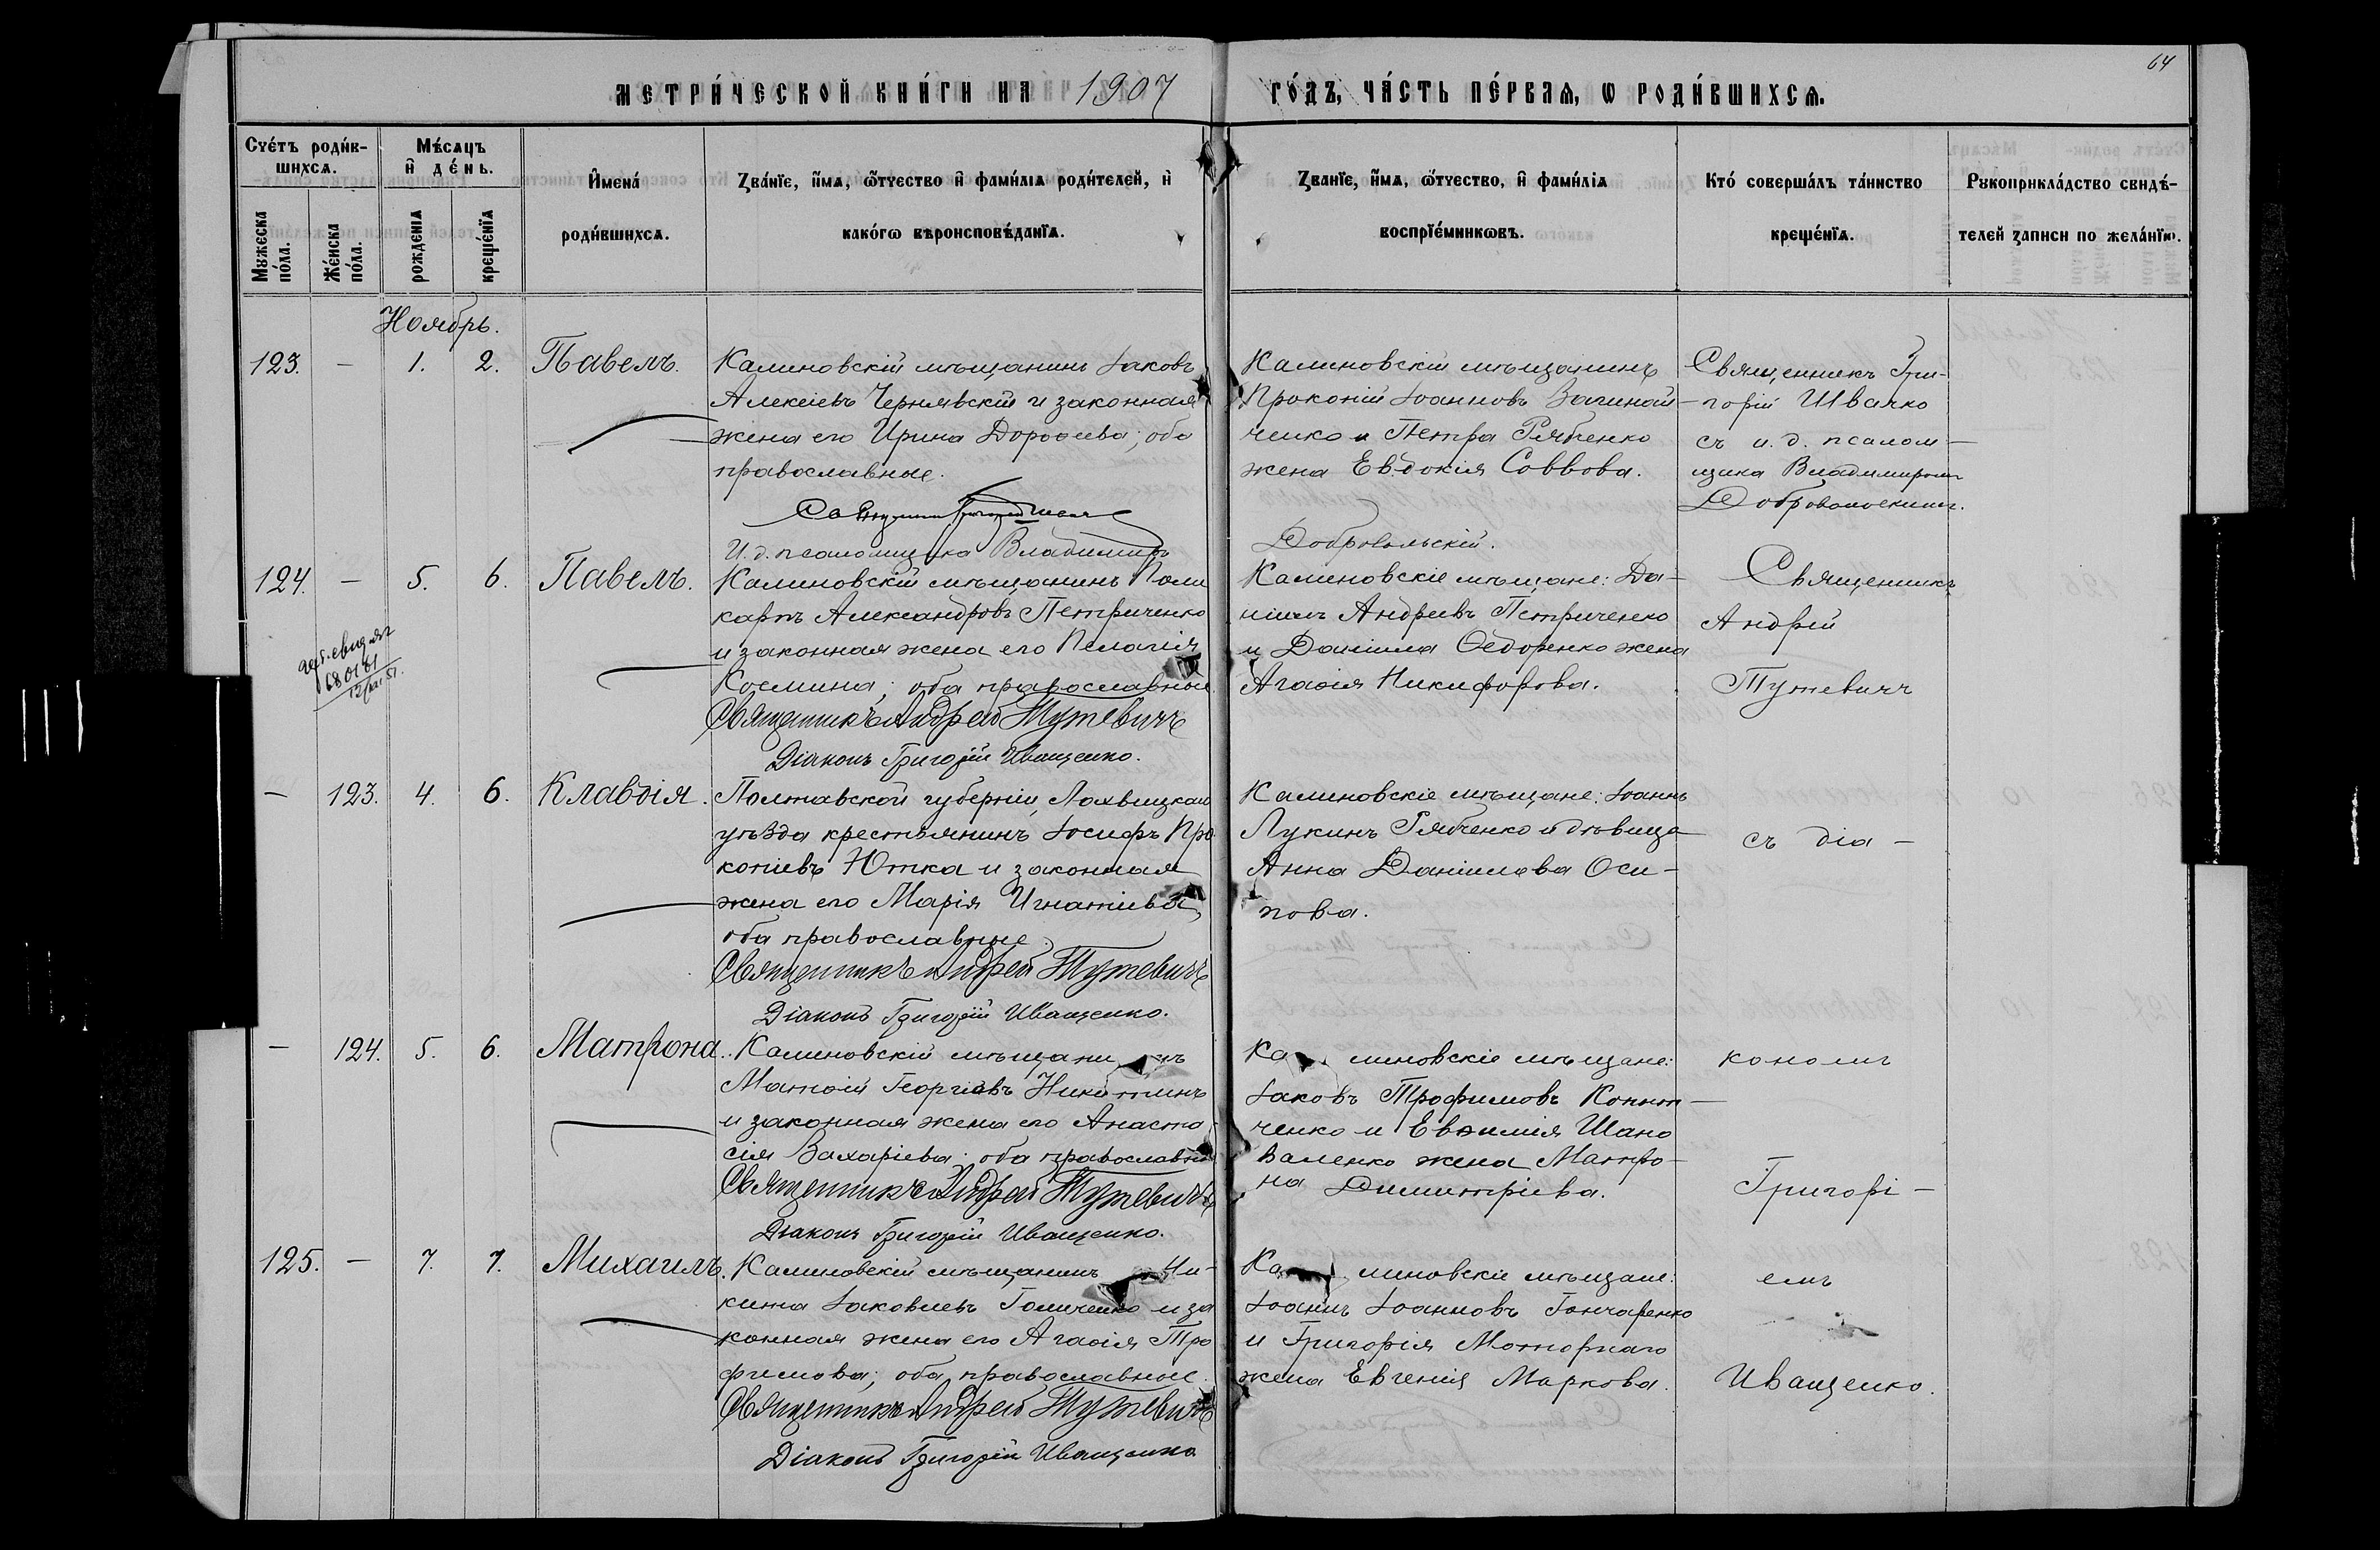 64
МЕТРИ́ЧЕСКОЙ КНИ́ГИ НА 1907 ГО́ДЪ, ЧА́СТЬ ПЕ́РВАѦ, Ѡ РОДИ́ВШИХСѦ.
Сче́тъ роди́в-
шихсѧ.
Мꙋжеска по́ла.
Же́нска по́ла.
Мѣ́сѧцъ
и҆ де́нь.
рожденїѧ
креще́нїѧ
И҆мена́
роди́вшихсѧ.
Зва́нїе, и҆́мѧ, ѻ҆́тчество и҆ фами́лїѧ роди́телей, и҆
како́гѡ вѣроисповѣ́данїѧ.
Зва́нїе, и҆́мѧ, ѻ҆́тчество, и҆ фами́лїѧ
воспрїе́мникѡвъ.
Кто́ соверша́лъ та́инство
креще́нїѧ.
Рꙋкоприкла́дство свидѣ́-
телей записи по жела́нїю.
Ноябрь.
123. — 1. 2. Павелъ.
Калиновскій мѣщанинъ Іаковъ
Алексіевъ Чернявскій и законная
жена его Ирина Дороѳеева; оба
православные.
И. д. псаломщика Владимиръ Добровольскій.
Калиновскій мѣщанинъ
Прокопій Іоанновъ
ченко и Петра Рябченко
жена Евдокія Саввова.
Священникъ Гри-
горій Ивачко
съ и. д. псалом-
щика Владимиромъ
Добровольскимъ.
124. — 5. 6. Павелъ.
68 01 81
Калиновскій мѣщанинъ Поли
карпъ Александровъ Петриченко
и законная жена его Пелагія
Космина; оба православные.
Священникъ Андрей Тутевичъ
Діаконъ Григорій Иващенко.
Калиновскіе мѣщане: Да-
ніилъ Андреевъ Петриченко
и Даніила Ѳедоренко жена
Агаѳія Никифорова.
Священникъ
Андрей
Тутевичъ
— 123. 4. 6. Клавдія.
Полтавской губерніи, Лохвицкаго
уѣзда крестьянинъ Іосифъ Про
копіевъ Ютка и законная
жена его Марія Игнатіева,
оба православные.
Священникъ Андрей Тутевичъ
Діаконъ Григорій Иващенко.
Калиновскіе мѣщане: Іоаннъ
Лукинъ Рябченко и дѣвица
Анна Даніилова Оси-
пова.
съ діа-
— 124. 5. 6. Матрона.
Калиновскій мѣщанинъ
Матѳій Георгіевъ Никитинъ
и законная жена его Анаста-
сія Захаріева; оба православные
Священникъ Андрей Тутевичъ
Діаконъ Григорій Иващенко.
Калиновскіе мѣщане:
Іаковъ Трофимовъ
ченко и Евѳимія Шапо
валенко жена Матро-
на Димитріева.
кономъ
Григорі-
125. — 7. 7. Михаилъ.
Калиновскій мѣщанинъ Ни-
кита Іаковлевъ Гомиченко и за
конная жена его Агаѳія Тро
фимова; оба православные.
Священникъ Андрей Тутевичъ
Діаконъ Григорій Иващенко
Калиновскіе мѣщане:
Іоаннъ Іоанновъ Гончаренко
и Григорія Моторнаго
жена Евгенія Маркова.
емъ
Иващенко.